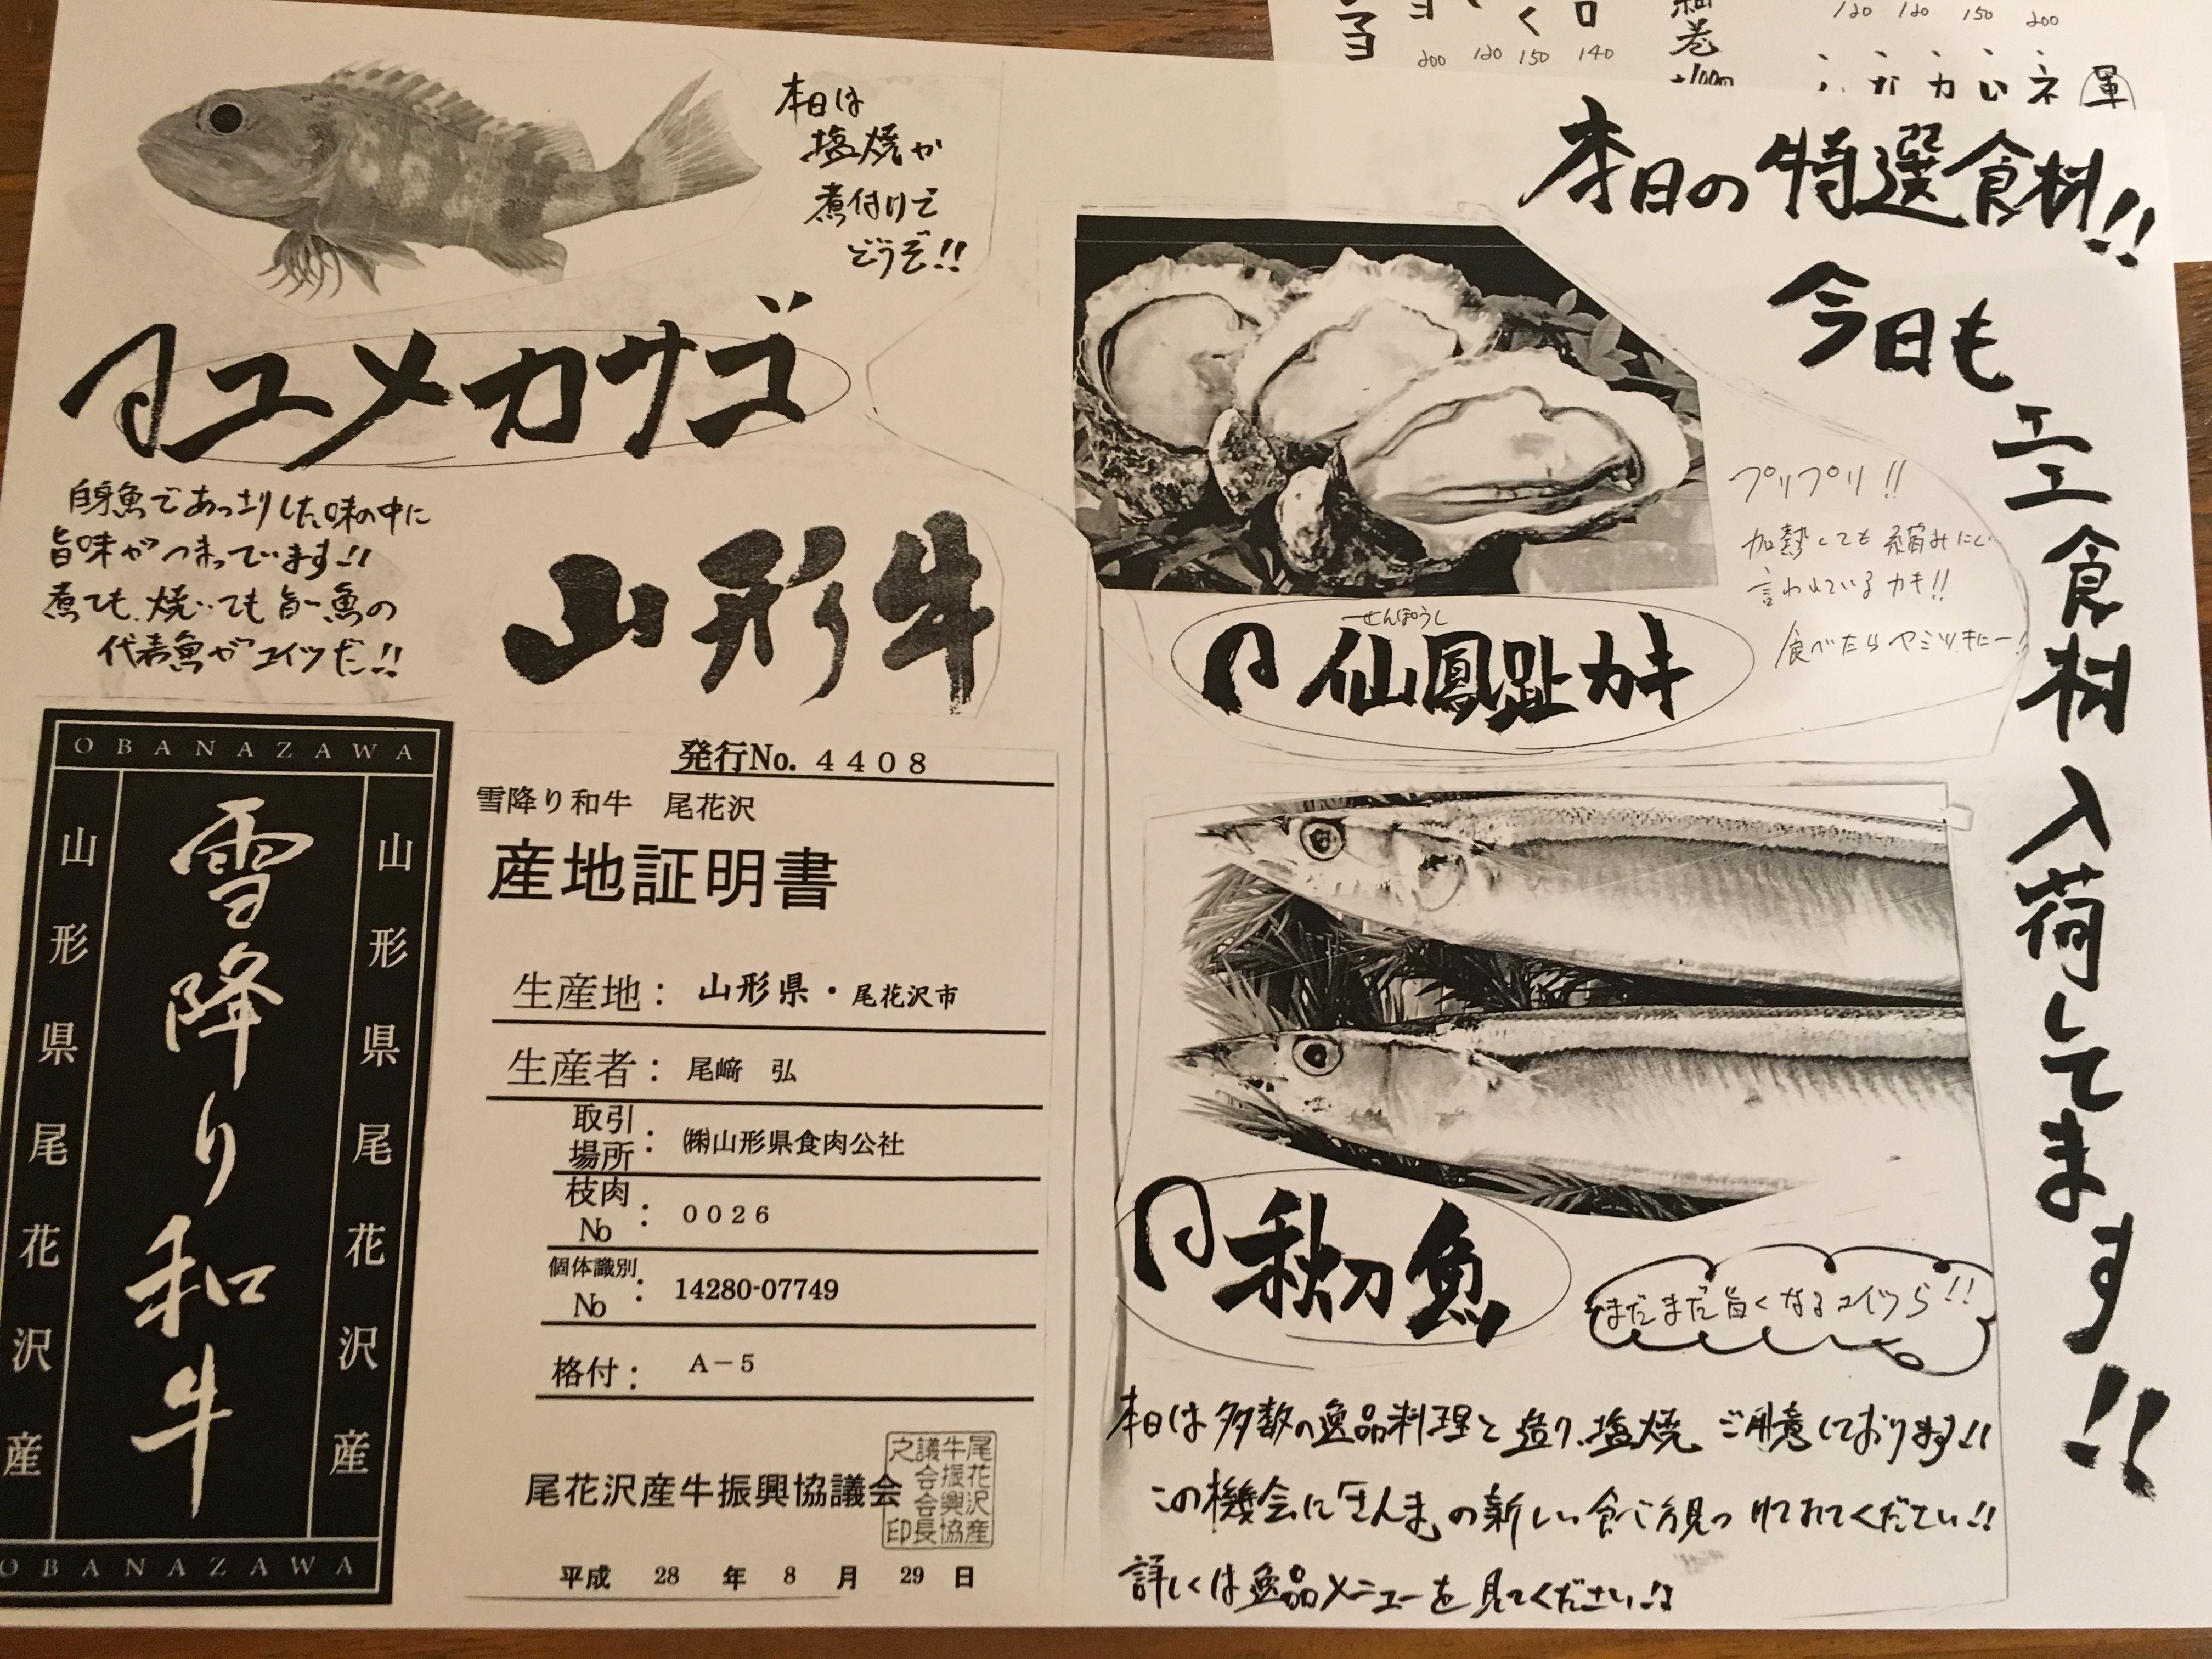 本日の特選食材!!
今日もエエ食材入荷してます!!
本日は
塩焼か
煮付けで
どうぞ!!
ユメカサゴ
白身魚であっさりした味の中に
旨味がつまっています!!
煮ても、焼いても旨い魚の
代表魚がコイツだ!!
山形牛
OBANAZAWA
山形県尾花沢産
雪降り和牛
山形県尾花沢産
OBANAZAWA
発行No. 4408
雪降り和牛 尾花沢
産地証明書
生産地： 山形県・尾花沢市
生産者： 尾﨑 弘
取引場所： ㈱山形県食肉公社
枝肉No： 0026
個体識別No： 14280-07749
格付： A－5
尾花沢産牛振興協議会
尾花沢産
牛振興協
議会会長
之印
平成 28 年 8 月 29 日
プリプリ!!
加熱しても縮みにくい
言われているカキ!!
食べたらヤミツキにー!
せんぽうし
仙鳳趾カキ
秋刀魚
まだまだ旨くなるコイツら!!
本日は多数の逸品料理と造り、塩焼、ご用意しております!!
この機会に「さんま」の新しい食べ方見つけてみてください!!
詳しくは逸品メニューを見てください!!
200 120 150 140
120 120 150 200
細巻
軍